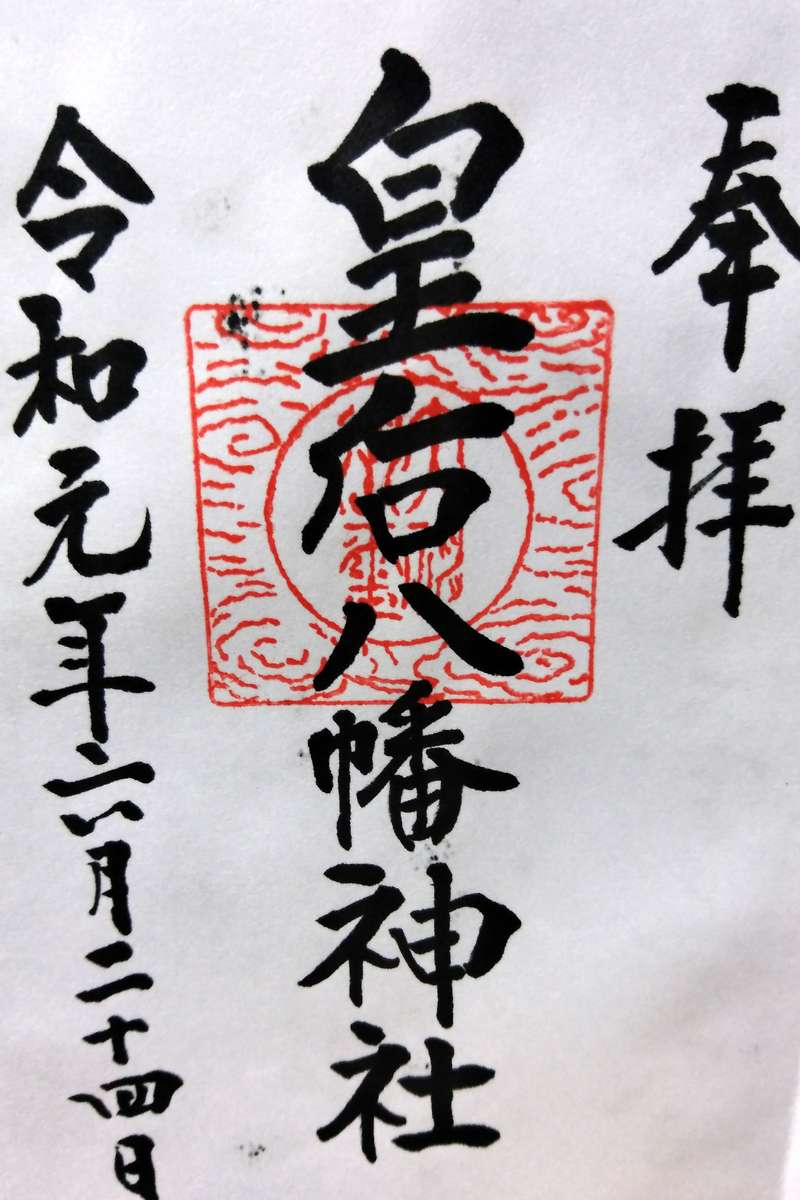 奉拝
皇后八幡神社
令和元年六月二十四日